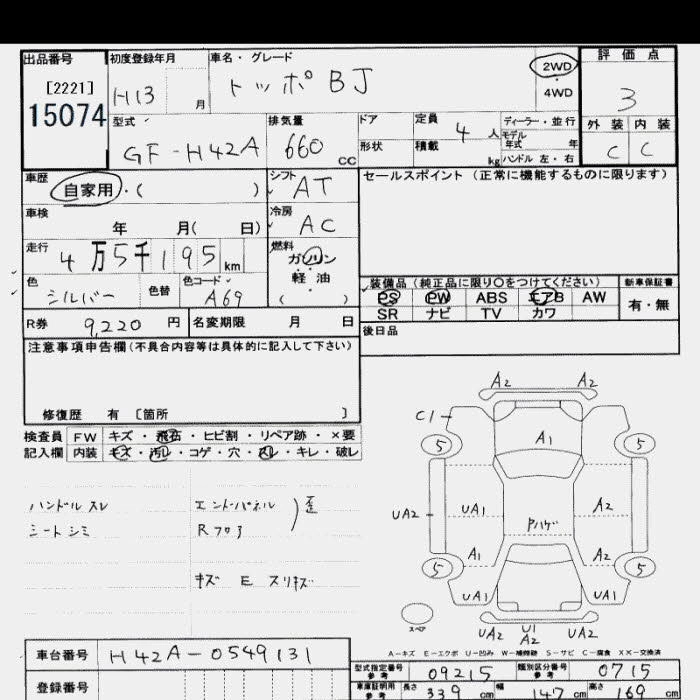 出品番号 初度登録年月 車名・グレード 評価点
[2221] H13 月 トッポBJ 2WD・4WD 3
15074
型式 排気量 ドア 定員 ディーラー・並行 外装 内装
GF-H42A 660 CC 4人 モデル年式 年 C C
形状 積載 kg ハンドル 左・右
車歴 シフト セールスポイント(正常に機能するものに限ります)
自家用・( ) AT
車検 冷房
年 月( 日) AC
走行 燃料
4万5千195km ガソリン
軽・油
( )
色 色替 色コード 装備品(純正品に限り〇をつけてください) 新車保証書
シルバー A69 PS PW ABS エアB AW 有・無
SR ナビ TV カワ
R券 9,220 円 名変期限 月 日 後日品
注意事項申告欄(不具合内容等は具体的に記入して下さい)
修復歴 有 〔箇所 〕
検査員 FW キズ・飛石・ヒビ割・リペア跡・×要
記入欄 内装 キズ・汚レ・コゲ・穴・スレ・キレ・破レ
ハンドル スレ エンドパネル
シート シミ Rフロア
歪
キズ E スリキズ
A2 A2
C1
5 A1 5
UA2 UA1 Pハゲ A2
A1 A2
5 5
UA1 UA1
スペア
UA2 U1 A2 UA2
A-キズ E-エクボ U-凹み W-補修跡 S-サビ C-腐食 XX-交換済
車台番号 H42A-0549131
型式指定番号 参考 09215 類別区分番号 参考 0715
登録番号
車庫証明用 参考 長さ 339 cm 幅 147 cm 高さ 169 cm